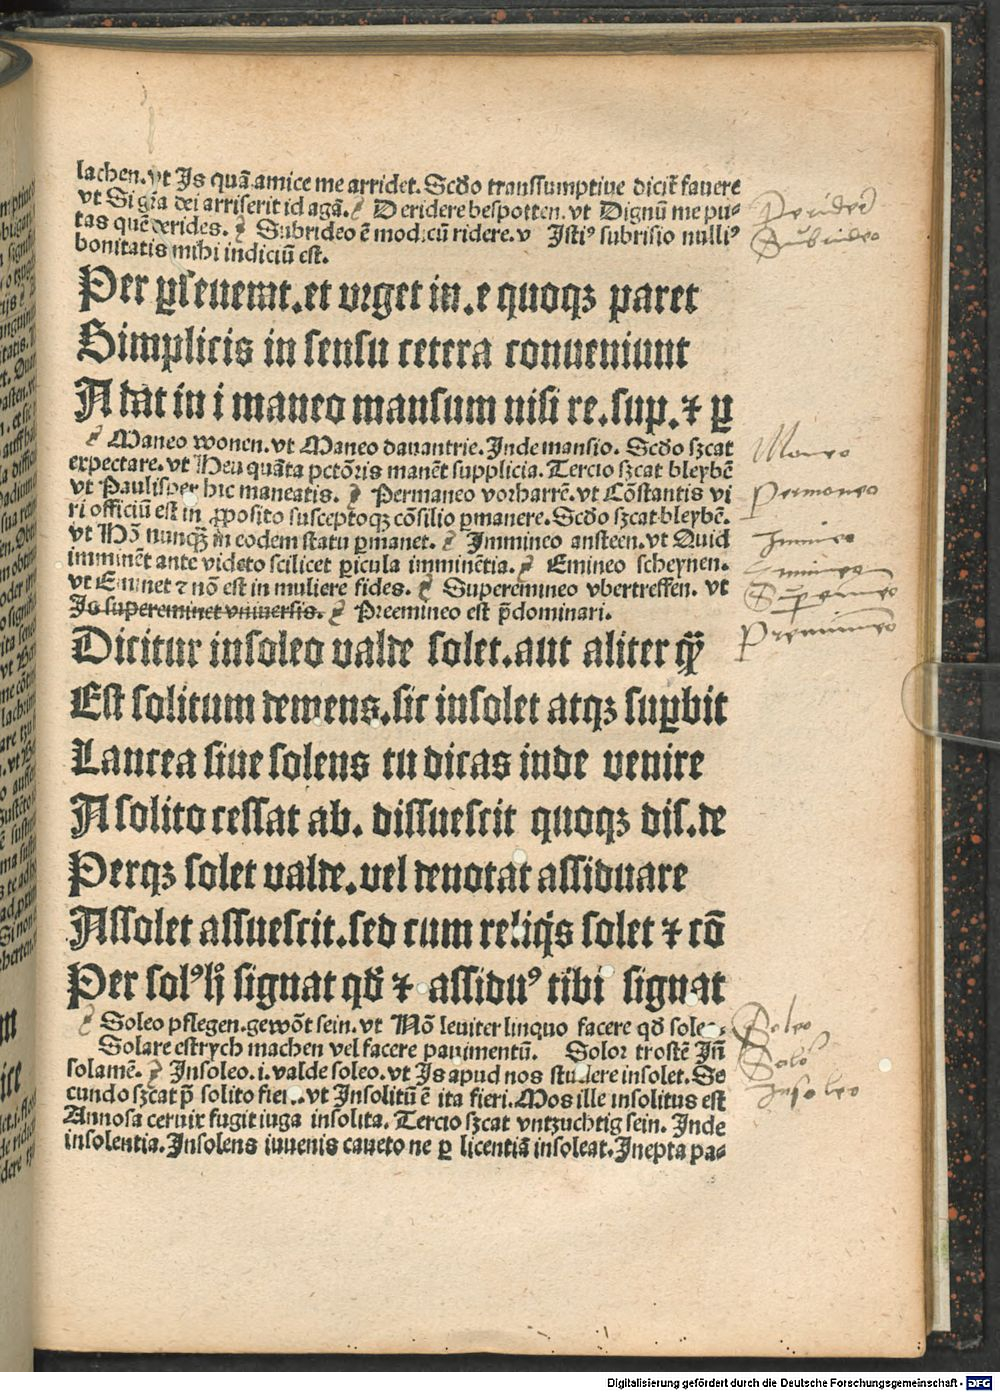 lachen. vt Is quā amice me arridet. Scďo transsumptiue dicit̄ fauere
vt Si gr̄a dei arriserit id agā. Deridere bespotten. vt Dignū me pu⸗
tas quē derides. Subrideo ē modicū ridere. v Istiꝰ subrisio nulliꝰ
bonitatis mihi indiciū est.
Per ꝑseuerat. et vrget in. e quoqꝫ paret
Simplicis in sensu cetera conueniunt
A dat in i maneo mansum nisi re. sup. ⁊ ꝑ
Maneo wonen. vt Maneo dauantrie. Inde mansio. Scďo sꝫcat
expectare. vt Heu quāta pctōris manēt supplicia. Tercio sꝫcat bleybē
vt Paulisper hic maneatis. Permaneo vorharrē. vt Cōstantis vi
ri officiū est in ꝓposito susceptoqꝫ cōsilio ꝑmanere. Scďo sꝫcat bleybē.
vt Nō nunqꝫ̄ in eodem statu ꝑmanet. Immineo ansteen. vt Quid
imminēt ante videto scilicet ꝑicula imminētia. Emineo scheynen.
vt Eminet ⁊ nō est in muliere fides. Superemineo vbertreffen. vt
Is supereminet vniuersis. Preemineo est p̄dominari.
Dicitur insoleo valde solet. aut aliter qꝫ̄
Est solitum demens. sic insolet atqꝫ suꝑbit
Laurea siue solens tu dicas inde venire
A solito cessat ab. dissuescit quoqꝫ dis. de
Perqꝫ solet valde. vel denotat assiduare
Assolet assuescit. sed cum reliq̇s solet ⁊ cō
Per solꝰ lꝫ signat qď ⁊ assiduꝰ tibi signat
Soleo pflegen. gewōt sein. vt Nō leuiter linquo facere qď soleo.
Solare estrych machen vel facere pauimentū. Solor trostē Iñ
solamē. Insoleo. i. valde soleo. vt Is apud nos studere insolet. Se
cundo sꝫcat p̄ solito fieri. vt Insolitū ē ita fieri. Mos ille insolitus est
Annosa ceruix fugit iuga insolita. Tercio sꝫcat vntzuchtig sein. Inde
insolentia. Insolens iuuenis caueto ne ꝑ licentiā insoleat. Inepta pa⸗
Derideo
Subrideo
Maneo
Permaneo
Immineo
Emineo
Suꝑemineo
Preemineo
Soleo
Solor
Insoleo
Digitalisierung gefördert durch die Deutsche Forschungsgemeinschaft - DFG